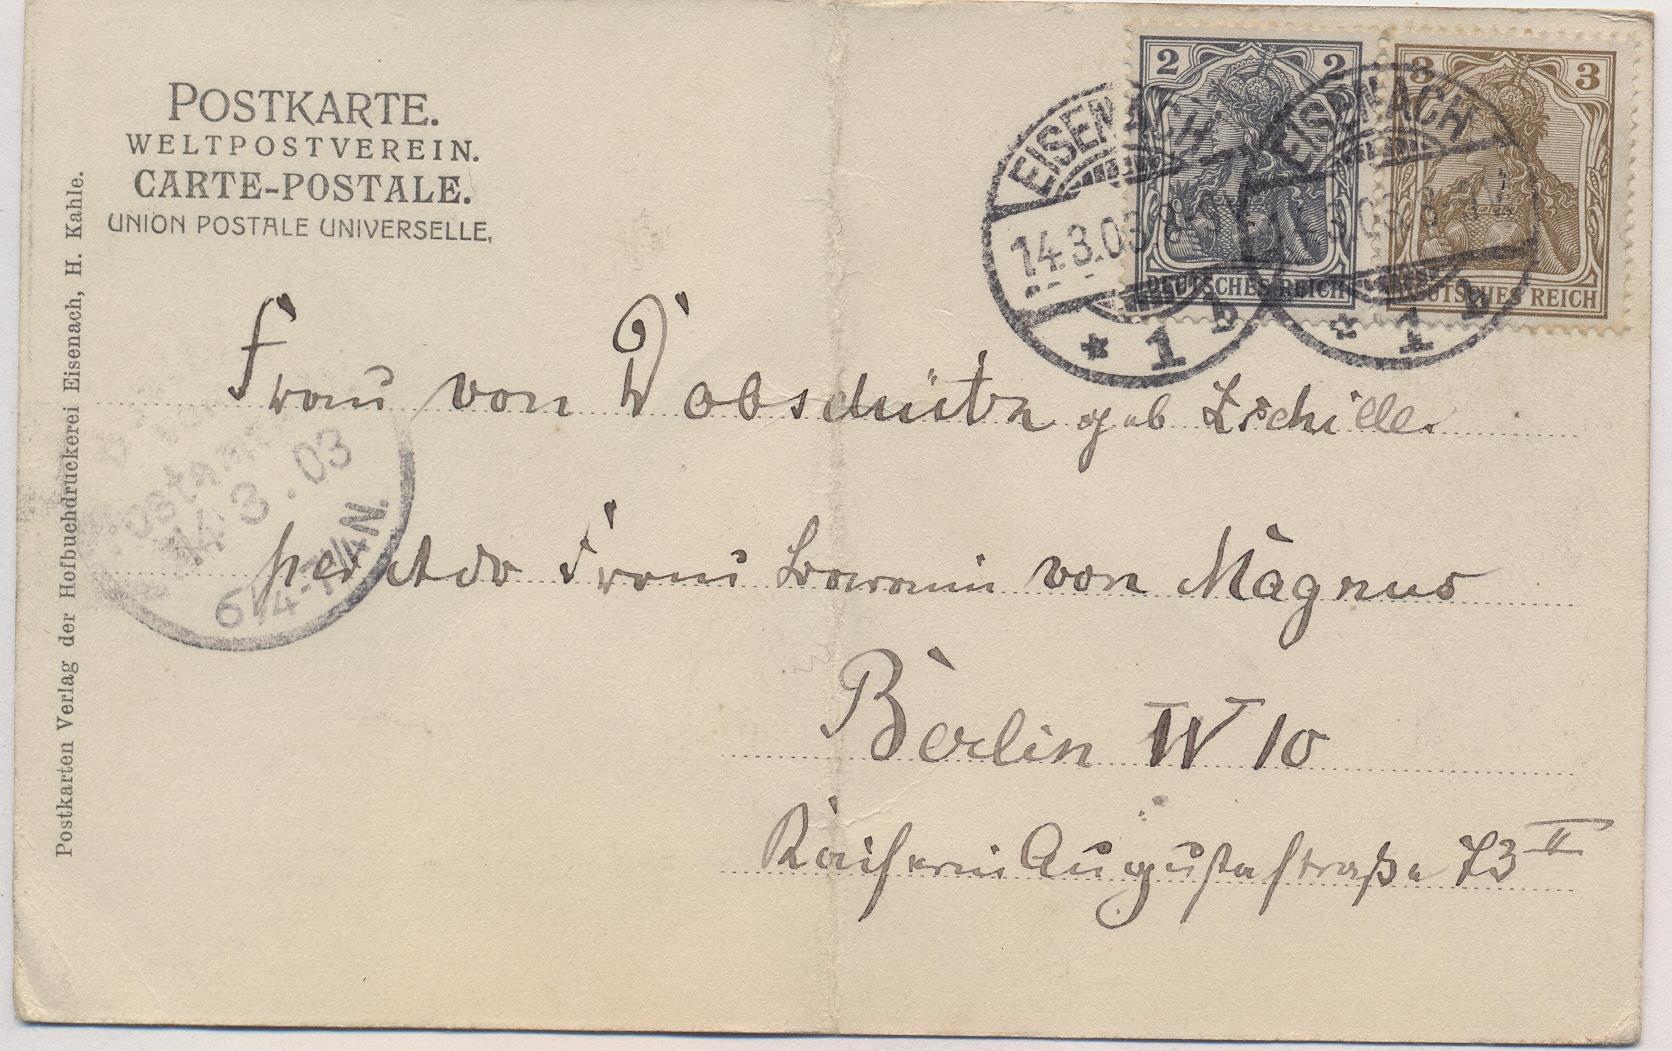 POSTKARTE.
WELTPOSTVEREIN.
CARTE-POSTALE.
UNION POSTALE UNIVERSELLE.
Postkarten Verlag der Hofbuchdruckerei Eisenach, H. Kahle.
2 2
DEUTSCHES REICH
3 3
DEUTSCHES REICH
EISENACH
14.3.03
* 1 b
EISENACH
* 1 b
Frau von Dobschütz geb Zschille.
per Adr Frau Baronin von Magnus
Berlin W 10
Kaiserin Augustastraße 73 II
14.3.03
6¼-7¼N.